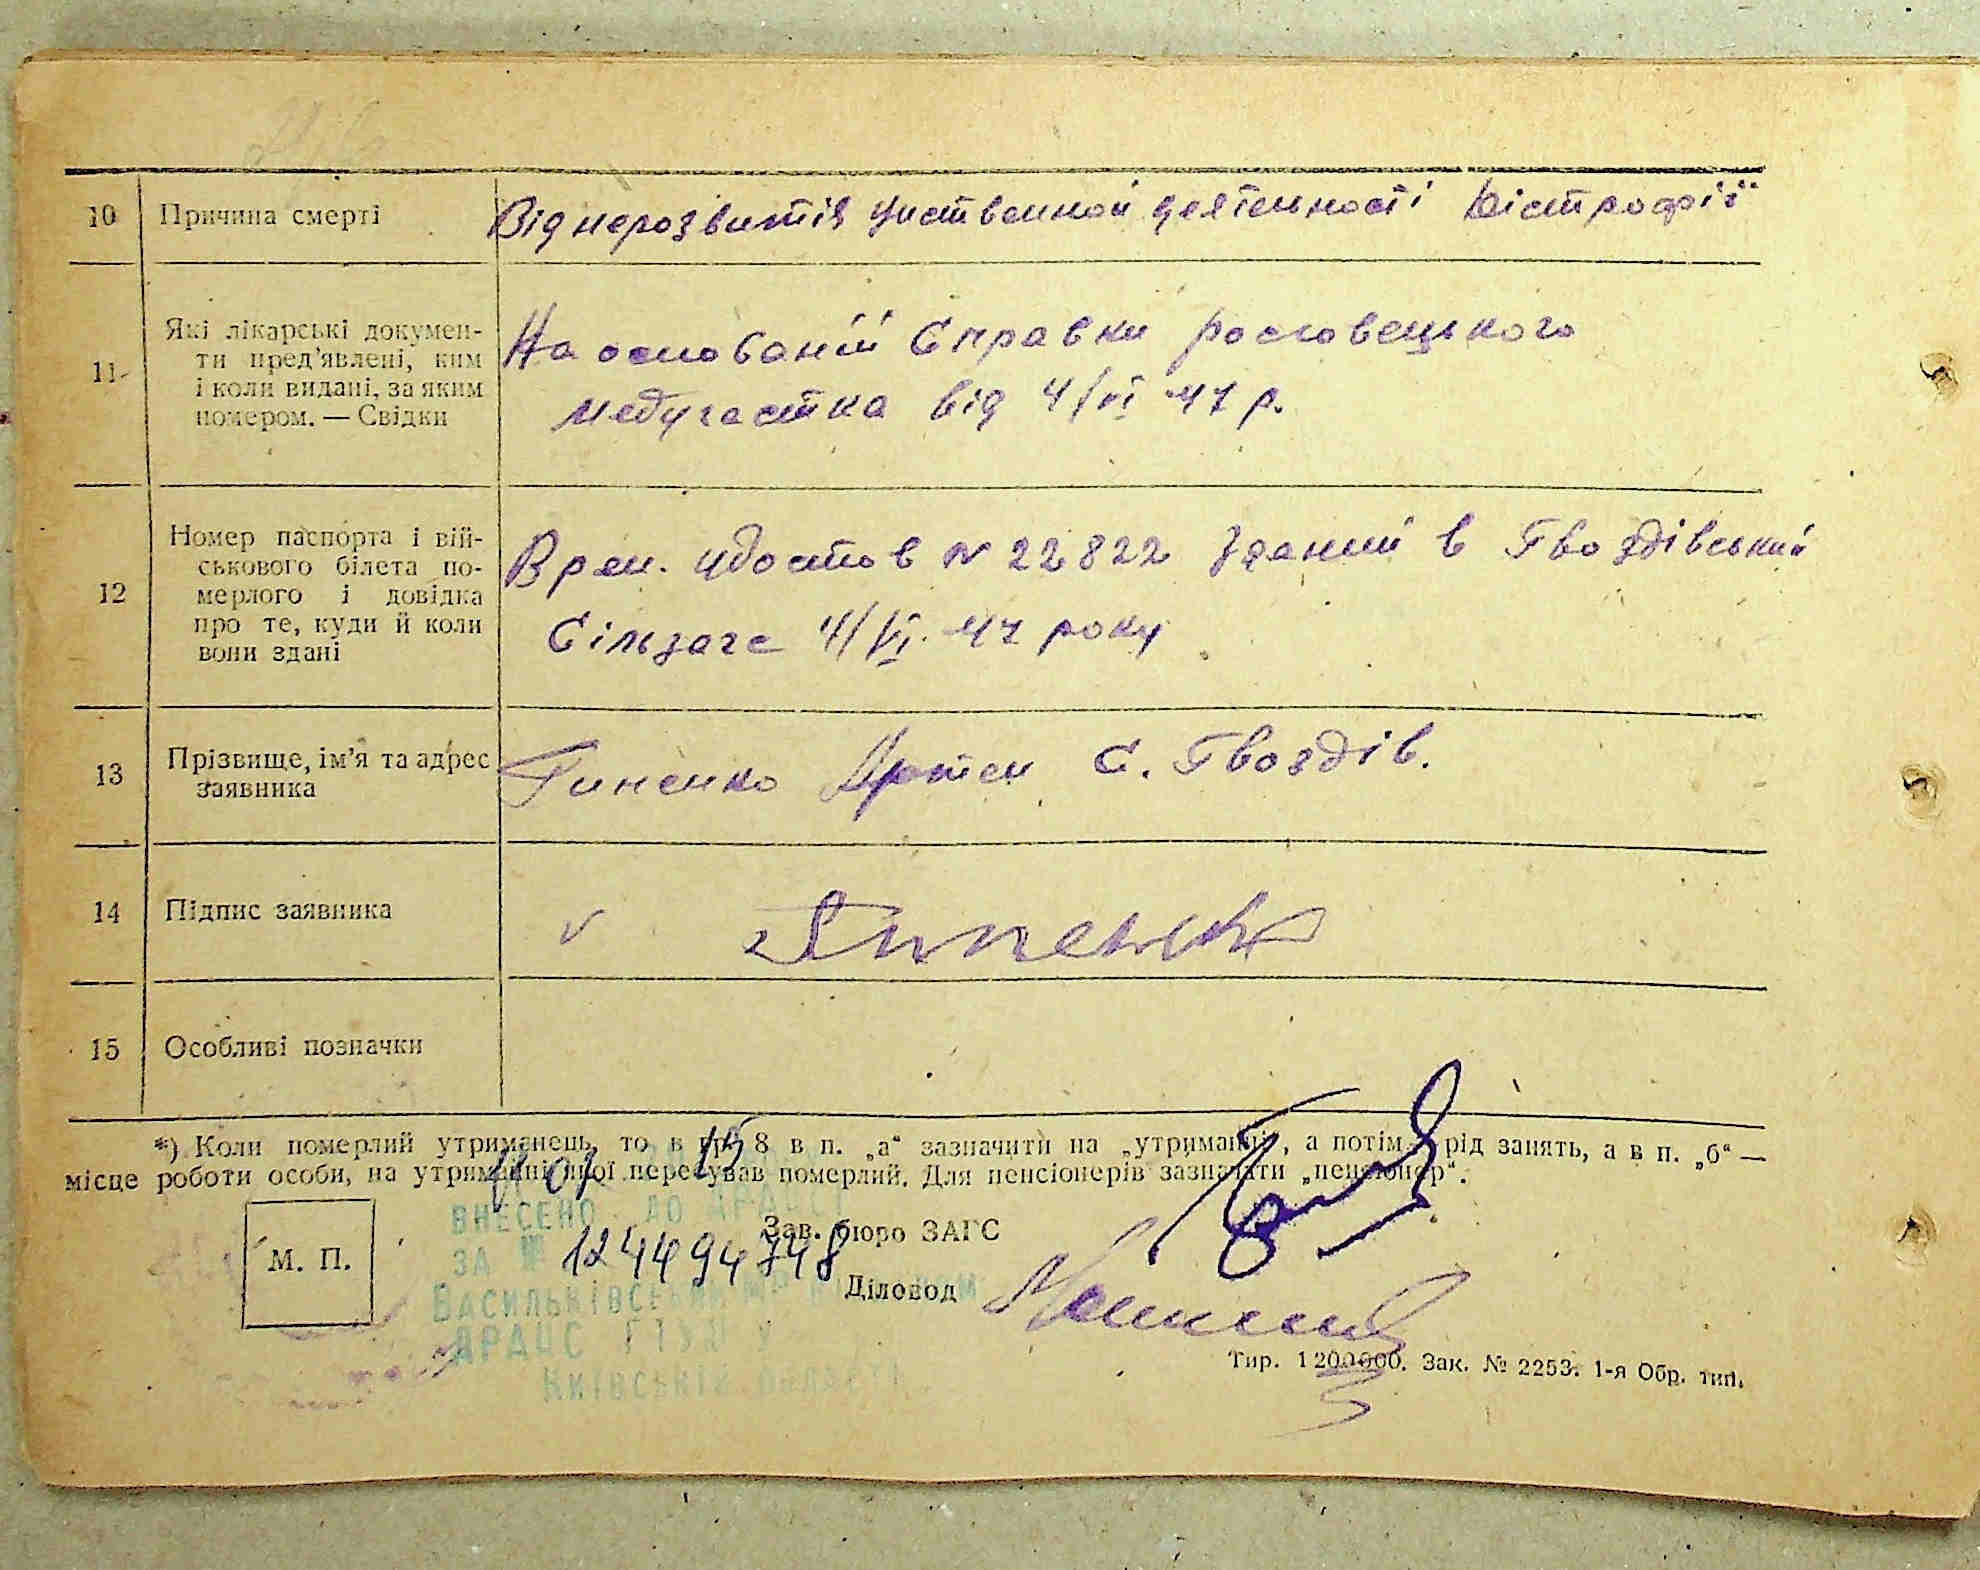 10 Причина смерті Від нерозвитія умственной деятельності Дістрофії
11 Які лікарські докумен-
ти пред'явлені, ким
і коли видані, за яким
номером. — Свідки
На основаній Справки рословецького
медучастка від 4/VI 47 р.
12 Номер паспорта і вій-
ськового білета по-
мерлого і довідка
про те, куди й коли
вони здані
Врем. удостов № 22822 зданий в Гвоздівський
Сільзагс 4/VI. 47 року
13 Прізвище, ім'я та адрес
заявника
Гиненко Артем С. Гвоздів.
14 Підпис заявника
15 Особливі позначки
*) Коли померлий утриманець, то в гр. 8 в п. „а“ зазначити на „утриманні“, а потім рід занять, а в п. „б“ —
місце роботи особи, на утриманні якої перебував померлий. Для пенсіонерів зазначати „пенсіонер“.
ВНЕСЕНО ДО ДРАЦСГ
Зав. бюро ЗАГС
ЗА № 124494748
М. П.
Діловод
ВАСИЛЬКІВСЬКИЙ
ДРАЦС ГТУЮ У
КИЇВСЬКІЙ ОБЛАСТІ
Тир. 1200000. Зак. № 2253. 1-я Обр. тип.